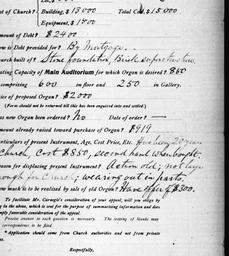 of Church? Building, $ 13000 Total Cost, $ 15,000
Equipment, $ 1500
Amount of Debt? $ 2400
is Debt provided for? By Mortgage.
Church built of? Stone foundation, Brick superstructure
Seating Capacity of Main Auditorium for which Organ is desired? 850
comprising 600 on floor and 250 in Gallery.
Price of proposed Organ? $ 2000
(Form should not be returned till this has been enquired into and settled.)
new Organ been ordered? No Date of order? —
Amount already raised toward purchase of Organ? $ 919
Particulars of present Instrument, Age, Cost Price, Etc. 20 years
Church, Cost $ 850, second hand when bought.
Reason for displacing present Instrument? old; not large
enough for Church; wearing out in parts.
much is to be realized by sale of old Organ? Have offer of $ 300.
To facilitate Mr. Carnegie's consideration of your appeal, will you oblige by
the above, which is sent for the purpose of summarizing information and does
imply favorable consideration of the appeal.
Precise answer to each question is necessary. The
correspondence to find.
Application should come from Church authorities and not from private
Respectfully,